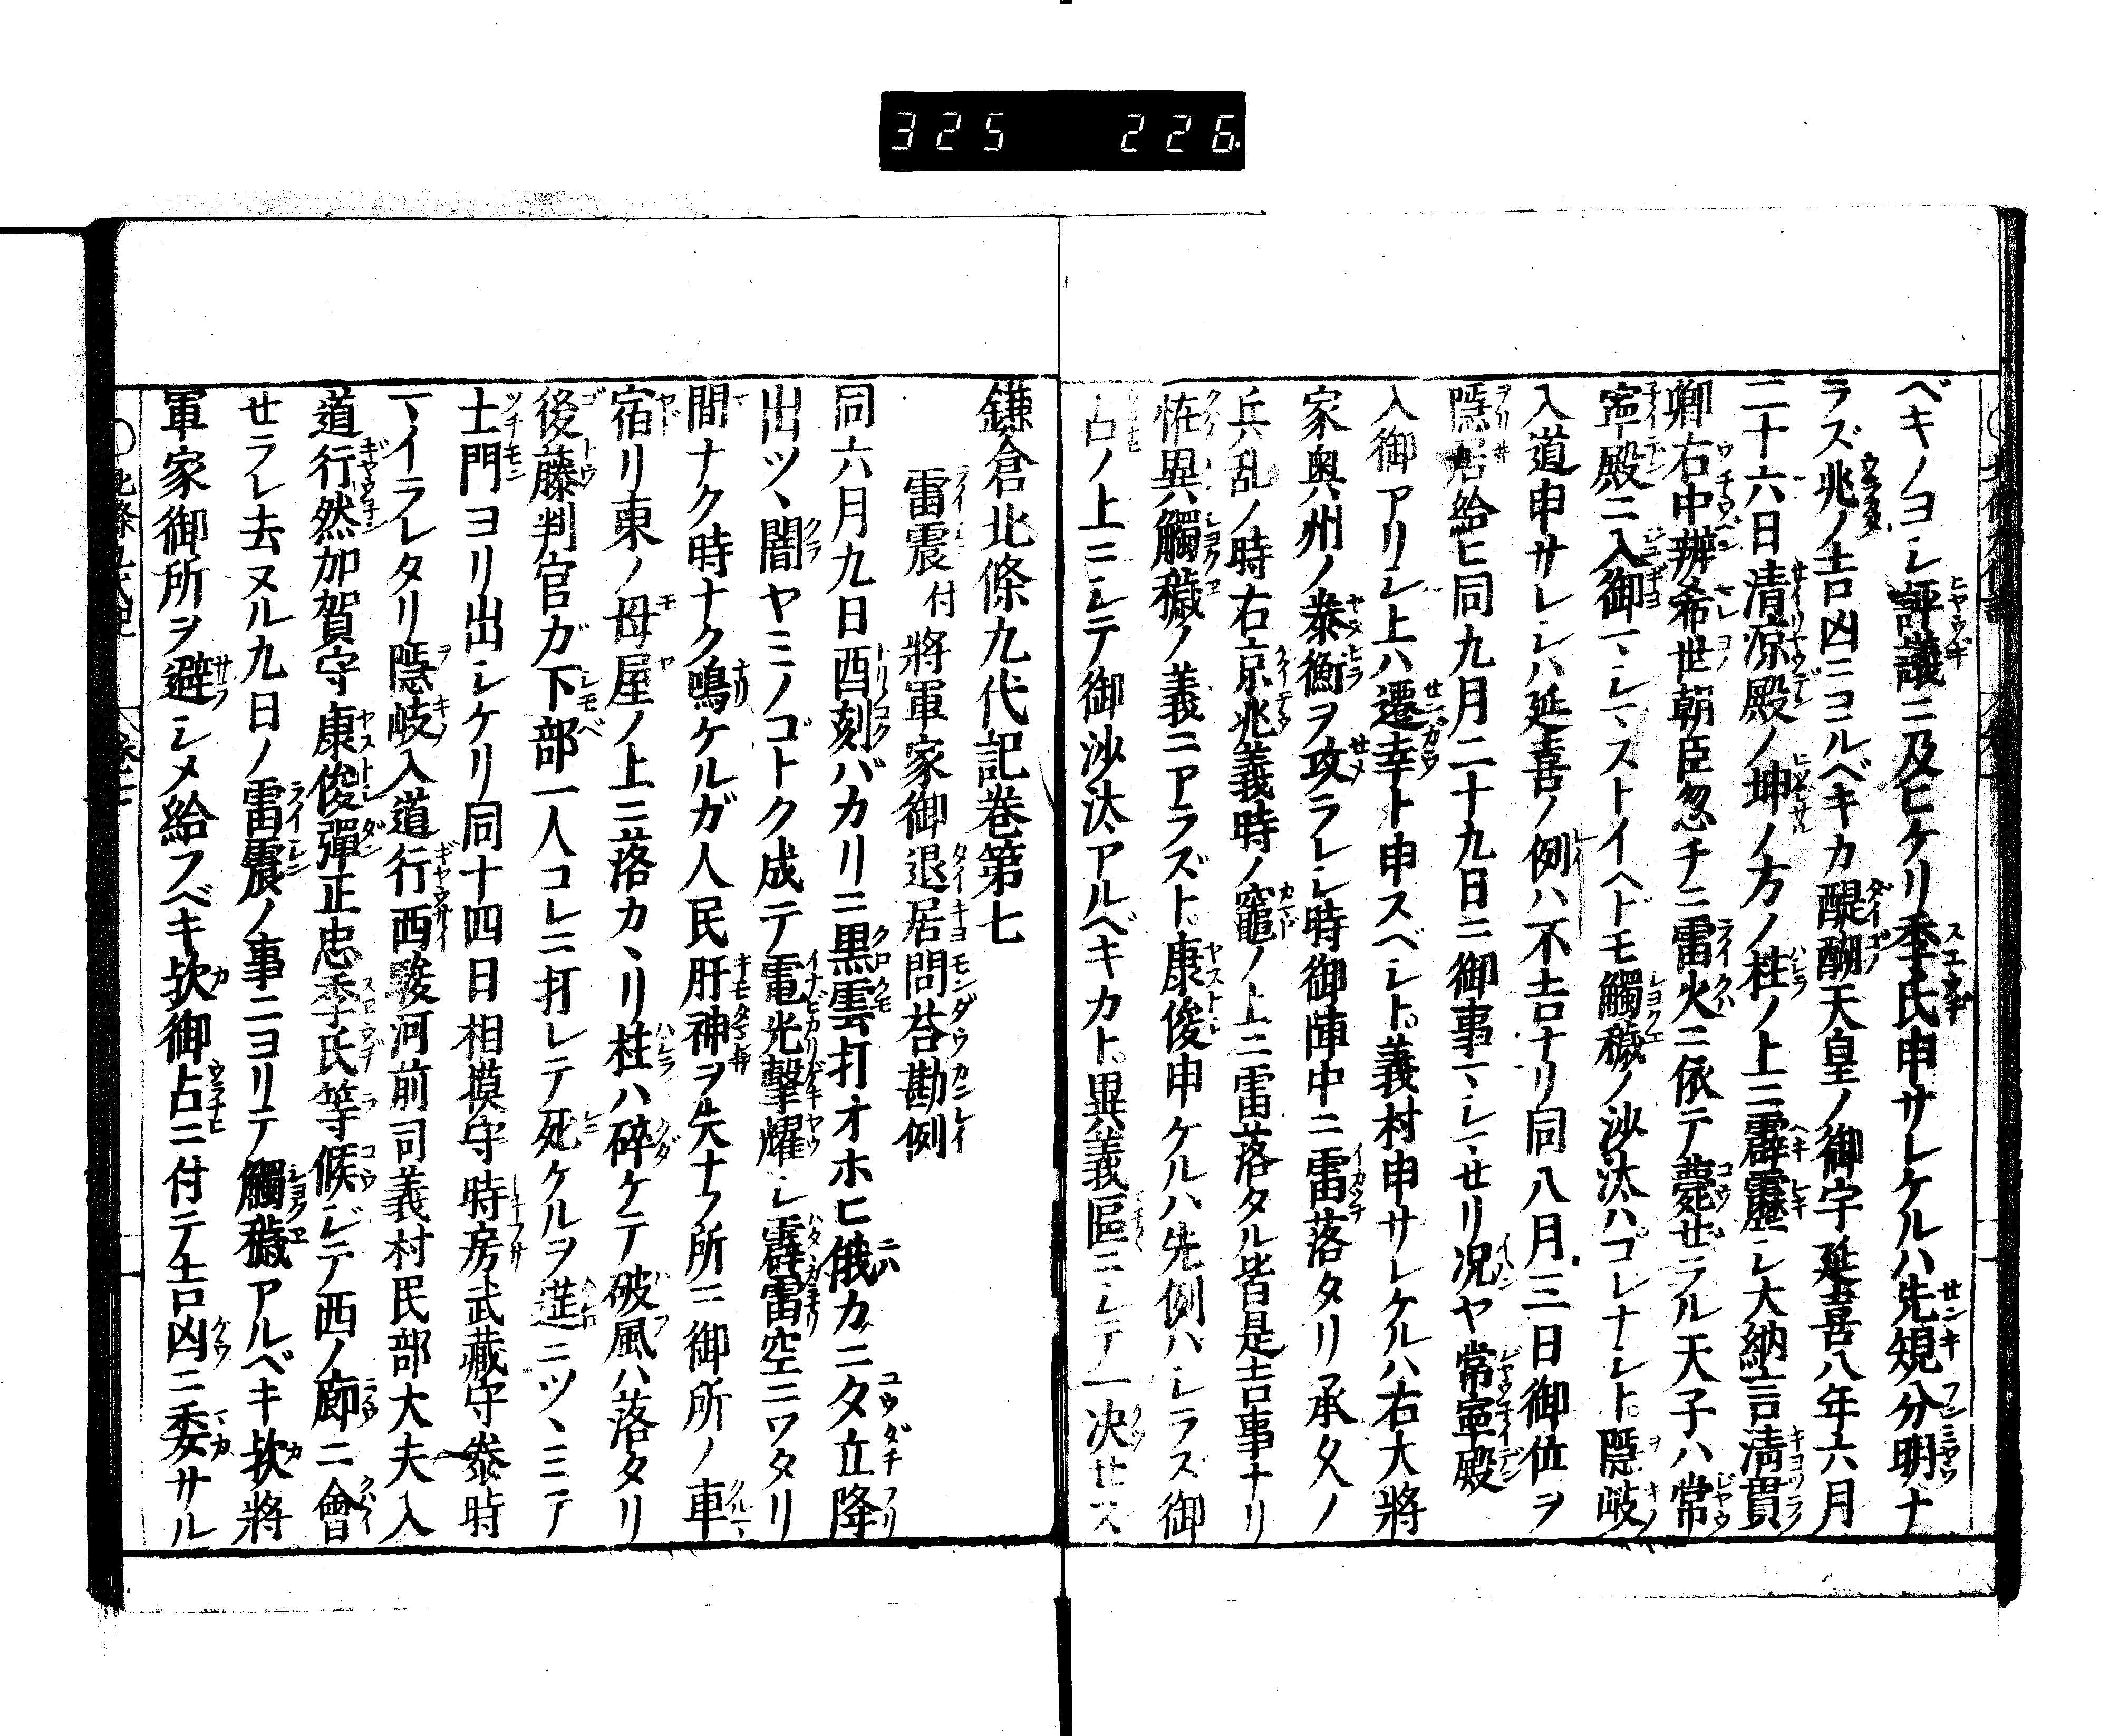 325 226
ベキノヨシ評議ニ及ヒケリ季氏申サレケルハ先規分明ナ
ラズ兆ノ吉凶ニヨルベキカ醍醐天皇ノ御宇延喜八年六月
二十六日清凉殿ノ坤ノ方ノ柱ノ上ニ霹靂シ大納言清貫
卿右中辨希世朝臣忽チニ雷火ニ依テ薨ゼラル天子ハ常
寧殿ニ入御マシマストイヘドモ觸穢ノ沙汰ハコレナシト隠岐
入道申サレシハ延喜ノ例ハ不吉ナリ同八月三日御位ヲ
隠居給ヒ同九月二十九日ニ御事マシマセリ況ヤ常寧殿
入御アリシ上ハ遷幸ト申スベシト義村申サレケルハ右大將
家奥州ノ泰衡ヲ攻ラレシ時御陣中ニ雷落タリ承久ノ
兵乱ノ時右京兆義時ノ竈ノ上ニ雷落タル皆是吉事ナリ
恠異觸穢ノ義ニアラズト康俊申ケルハ先例ハシラズ御
占ノ上ニシテ御沙汰アルベキカト異義區ニシテ一决セス
鎌倉北條九代記巻第七
雷震付將軍家御退居問荅勘例
同六月九日酉刻バカリニ黒雲打オホヒ俄カニ夕立降
出ツヽ闇ヤミノゴトク成テ電光撃燿シ霹雷空ニワタリ
間ナク時ナク鳴ケルガ人民肝神ヲ失ナフ所ニ御所ノ車
宿リ東ノ母屋ノ上ニ落カヽリ柱ハ碎ケテ破風ハ落タリ
後藤判官ガ下部一人コレニ打レテ死ケルヲ莚ニツヽミテ
土門ヨリ出シケリ同十四日相摸守時房武藏守泰時
マイラレタリ隠岐入道行西駿河前司義村民部大夫入
道行然加賀守康俊彈正忠季氏等候ジテ西ノ廊ニ會
セラレ去ヌル九日ノ雷震ノ事ニヨリテ觸穢アルベキ歟將
軍家御所ヲ避シメ給フベキ歟御占ニ付テ吉凶ニ委サル